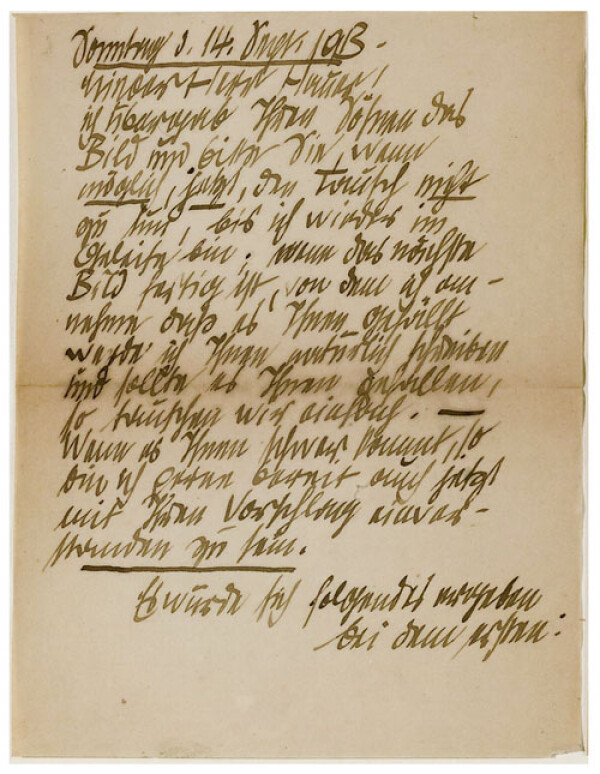 Sonntag d. 14. Sept. 1913 -
Herr Hauer!
ich übergab Ihren Söhnen das
Bild und bitte Sie, wenn
möglich, jetzt, den Tausch nicht
zu tun, bis ich wieder im
Geleise bin; wenn das nächste
Bild fertig ist, von dem ich an-
nehme daß es Ihnen gefällt
werde ich Ihnen natürlich schreiben
und sollte es Ihnen gefallen,
so tauschen wir einfach. —
Wenn es Ihnen schwer kommt, so
bin ich gerne bereit auch jetzt
mit Ihren Vorschlag einver-
standen zu sein.
Es würde sich folgendes ergeben
bei dem ersten: